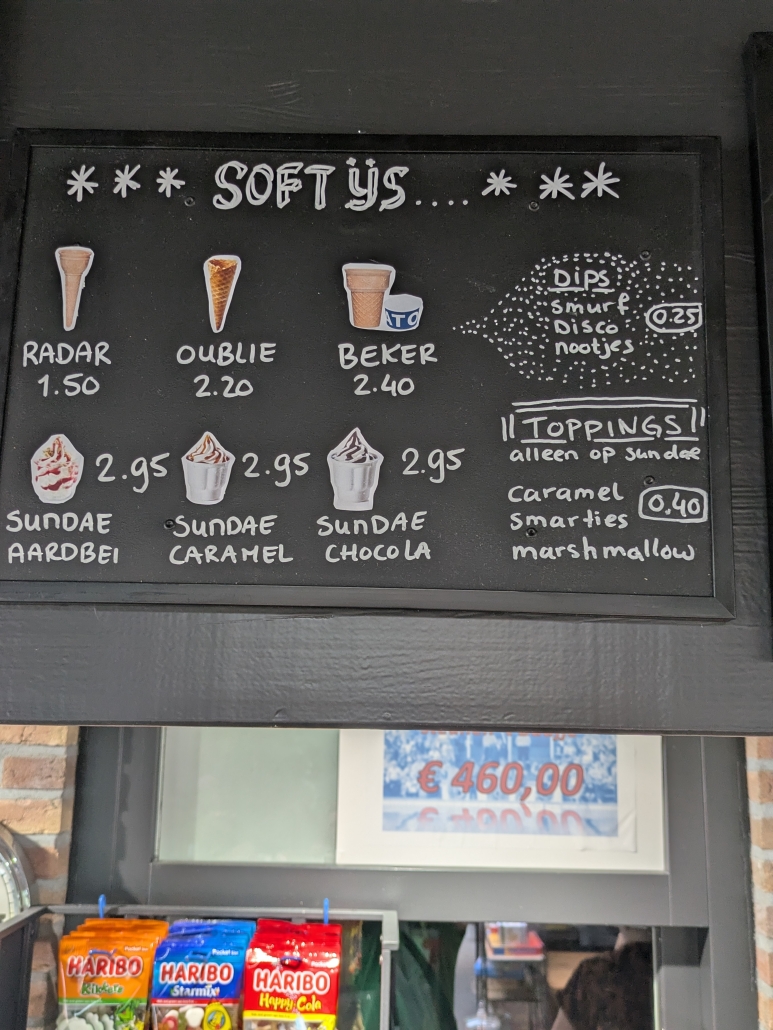 * * * SOFT ÿS.... * * *
RADAR
1.50
OUBLIE
2.20
ATO
BEKER
2.40
DIPS
smurf
DISCO
nootjes
0.25
2.95
SUNDAE
AARDBEI
2.95
SUNDAE
CARAMEL
2.95
SUNDAE
CHOCOLA
TOPPINGS
alleen op sundae
caramel
smarties
marshmallow
0,40
€ 460,00
HARIBO
Kikofats
HARIBO
Starmix
HARIBO
Happy Cola